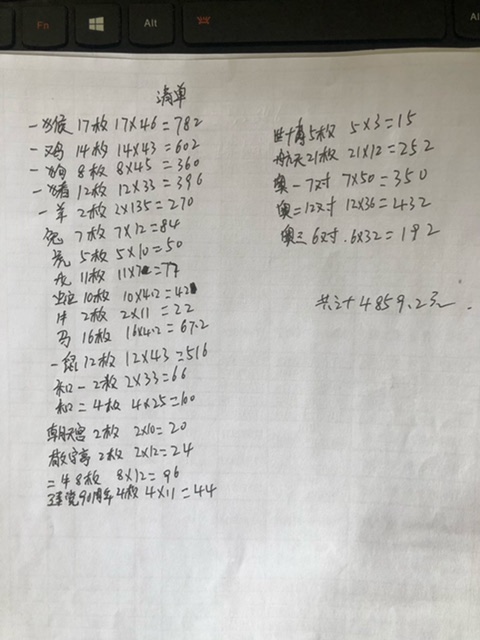 Fn
Alt
清单
一猴 17枚 17×46=782
一鸡 14枚 14×43=602
一狗 8枚 8×45=360
一猪 12枚 12×33=396
一羊 2枚 2×135=270
兔 7枚 7×12=84
虎 5枚 5×10=50
龙 11枚 11×7=77
蛇 10枚 10×4.2=42
牛 2枚 2×11=22
马 16枚 16×4.2=67.2
一鼠 12枚 12×43=516
和一2枚 2×33=66
和二4枚 4×25=100
朝天宫 2枚 2×10=20
敬字亭 2枚 2×12=24
二羊 8枚 8×12=96
建党90周年4枚 4×11=44
世博5枚 5×3=15
航天21枚 21×12=252
奥一7对 7×50=350
奥二12对 12×36=432
奥三6对 6×32=192
共计4859.2元